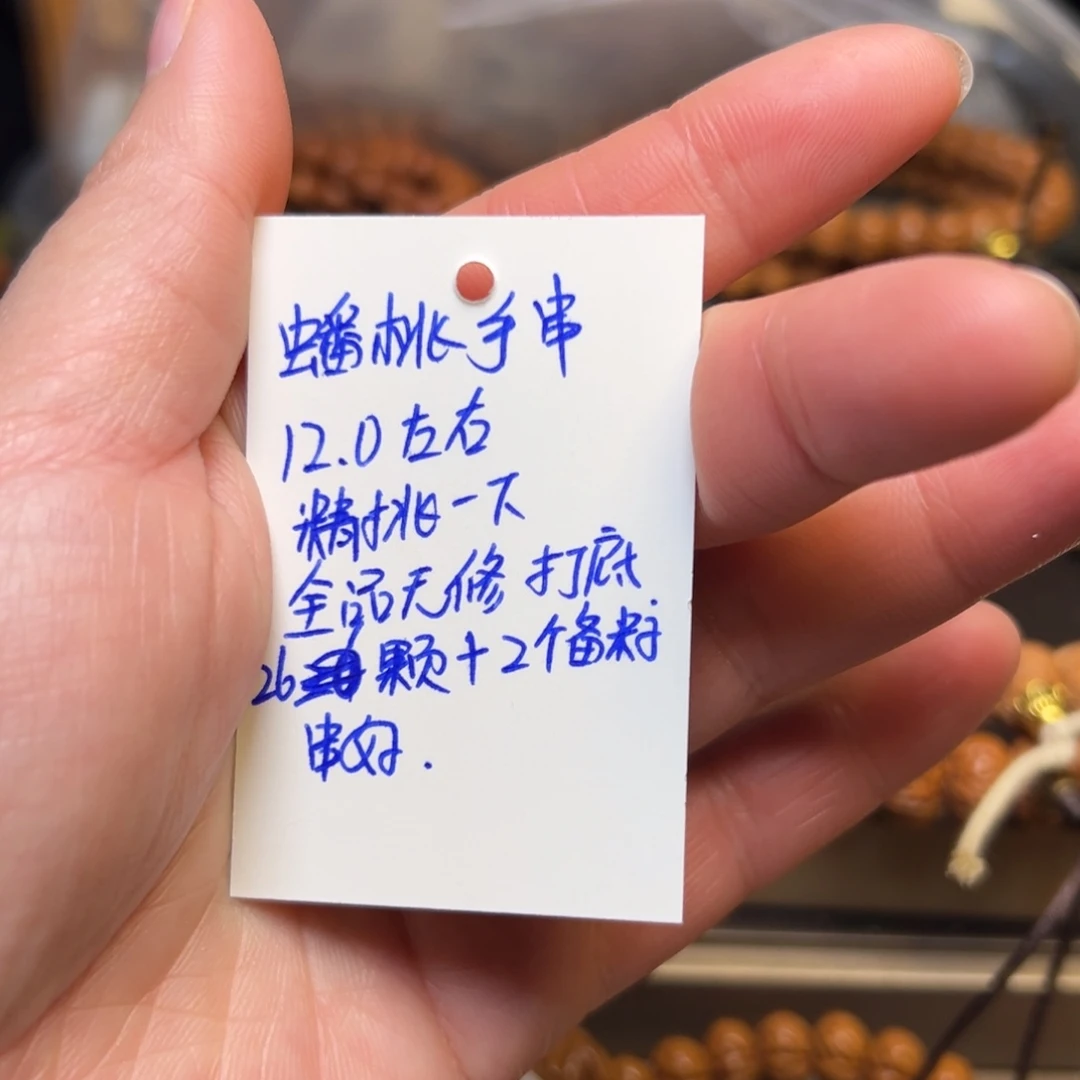 蟠桃手串
12.0左右
精挑一下
全品无修 打底
26颗+2个备籽
串好.